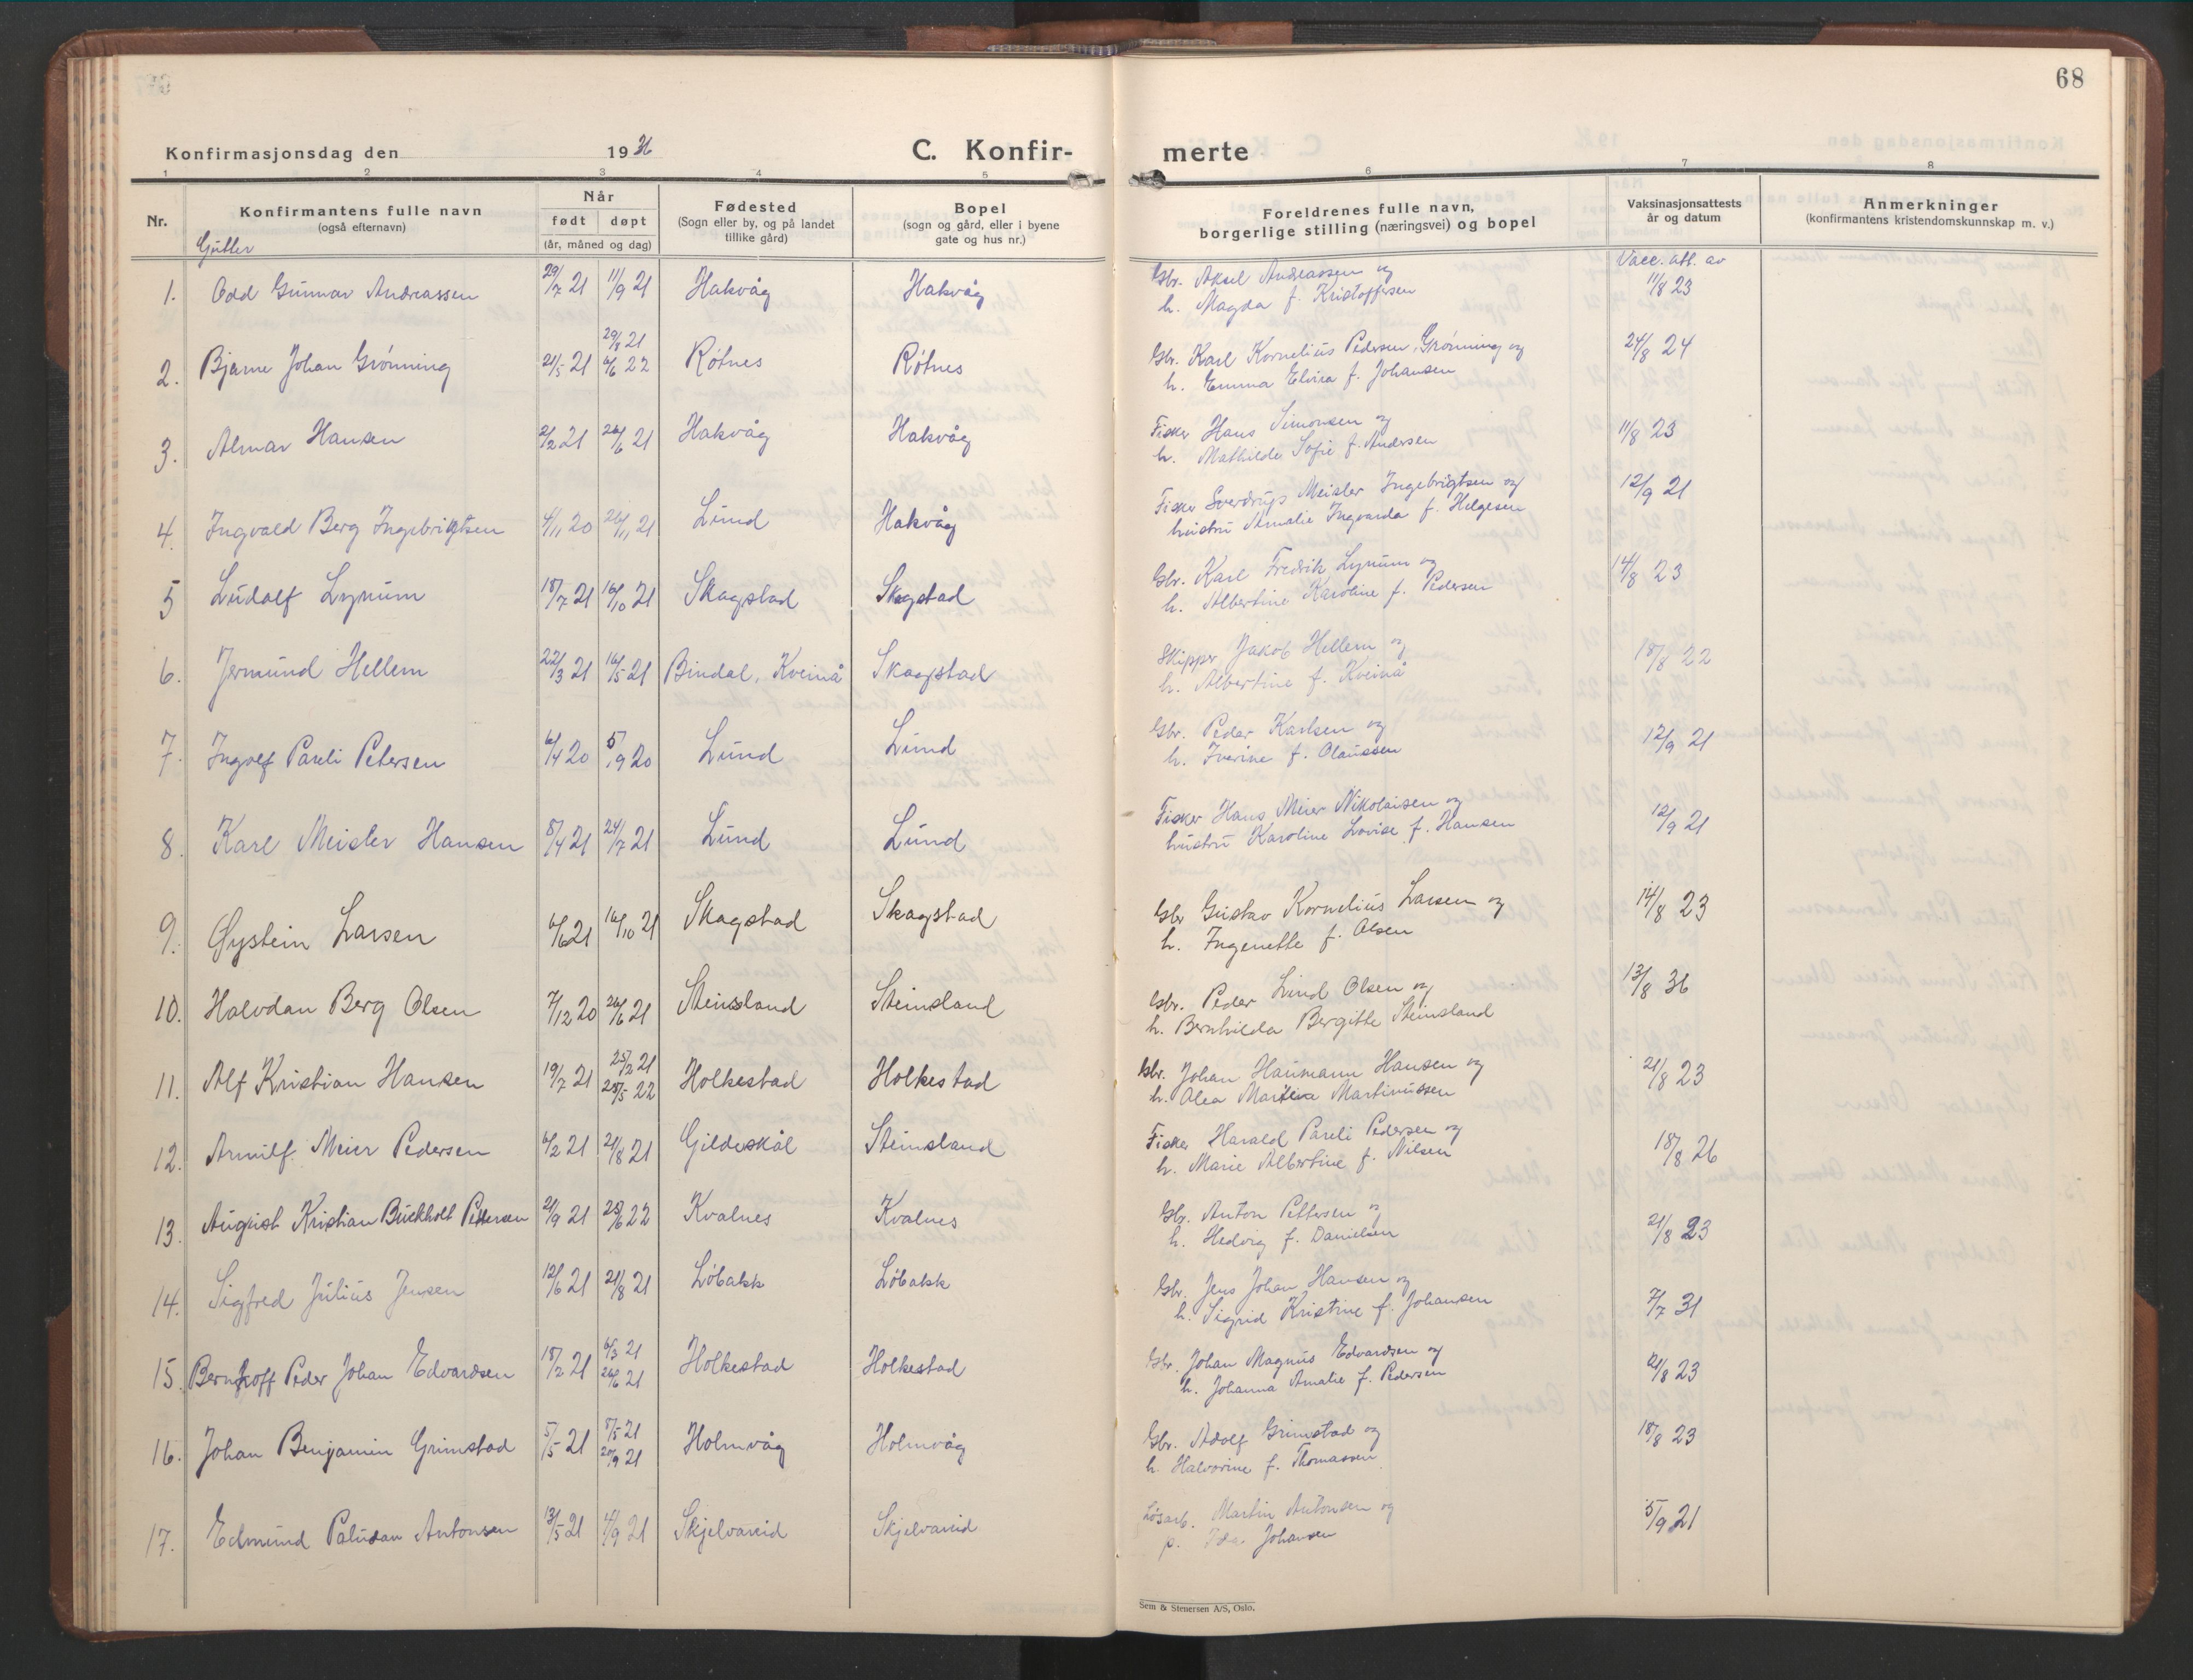 68
Konfirmasjonsdag den 1936 C. Konfir- merte
1 2 3 4 5 6 7 8
Nr. Konfirmantens fulle navn (også efternavn) Når født døpt (år, måned og dag) Fødested (Sogn eller by, og på landet tillike gård) Bopel (sogn og gård, eller i byene gate og hus nr.) Foreldrenes fulle navn, borgerlige stilling (næringsvei) og bopel Vaksinasjonsattests år og datum Anmerkninger (konfirmantens kristendomskunnskap m. v.)
Gutter
Vacc. att. av
1. Odd Gunnar Andreassen 29/7 21 11/9 21 Hakvåg Hakvåg Gbr. Aksel Andreassen og 11/8 23
h. Magda f. Kristoffersen
29/8 21
2. Bjarne Johan Grønning 21/5 21 6/6 22 Røtnes Røtnes Gbr. Karl Kornelius Pedersen Grønning og 24/8 24
h. Emma Elvira f. Johansen
3. Almar Hansen 2/2 21 26/6 21 Hakvåg Hakvåg Fisker Hans Simonsen og 11/8 23
h. Mathilde Sofie f. Andersen
4. Ingvald Berg Ingebrigtsen 4/11 20 26/11 21 Lund Hakvåg Fisker Sverdrup Meisler Ingebrigtsen og 12/9 21
hustru Amalie Ingvarda f. Helgesen
5 Ludolf Lynum 18/7 21 16/10 21 Skagstad Skagstad Gbr. Karl Fredrik Lynum og 14/8 23
h. Albertine Karoline f. Pedersen
6. Jermund Hellem 22/3 21 16/5 21 Bindal, Kveinå Skagstad Skipper Jakob Hellem og 18/8 22
h. Albertine f. Kveinå
7. Ingolf Pareli Petersen 6/4 20 5/9 20 Lund Lund Gbr. Peder Karlsen og 12/9 21
h. Iverine f. Olaussen
8. Karl Meisler Hansen 8/4 21 24/7 21 Lund Lund Fisker Hans Meier Nikolaisen og 12/9 21
hustru Karoline Lovise f. Hansen
9. Øystein Larsen 6/6 21 16/10 21 Skagstad Skagstad Gbr Gustav Kornelius Larsen og 14/8 23
h. Ingenette f. Olsen
10. Halvdan Berg Olsen 7/12 20 26/6 21 Steinsland Steinsland Gbr. Peder Lind Olsen og 13/8 36
h. Bernhilda Bergitte Steinsland
25/2 21
11. Alf Kristian Hansen 19/7 21 28/5 22 Holkestad Holkestad Gbr. Johan Haumann Hansen og 21/8 23
h. Olea Martina Martinussen
12. Arnulf Meier Pedersen 6/2 21 21/8 21 Gildeskål Steinsland Fisker Harald Pareli Pedersen og 18/8 26
h. Marie Albertine f. Nilsen
13. August Kristian Buckholt Pettersen 21/9 21 25/6 22 Kvalnes Kvalnes Gbr. Anton Pettersen og 21/8 23
h. Hedvig f. Danielsen
14. Sigfred Julius Jensen 12/6 21 21/8 21 Løbakk Løbakk Gbr. Jens Johan Hansen og 7/7 31
h. Sigrid Kristine f. Johansen
6/3 21
15. Bernhoff Peder Johan Edvardsen 18/2 21 26/6 21 Holkestad Holkestad Gbr. Johan Magnus Edvardsen og 21/8 23
h. Johanna Amalie f. Pedersen
8/5 21
16. Johan Benjamin Grimstad 5/5 21 20/9 21 Holmvåg Holmvåg Gbr. Adolf Grimstad og 18/8 23
h. Halvorine f. Thomassen
17. Edmund Paludan Antonsen 13/5 21 4/9 21 Skjelvareid Skjelvareid Løsarb. Martin Antonsen og 5/9 21
p. Ida Johansen
Sem & Stenersen A/S, Oslo.